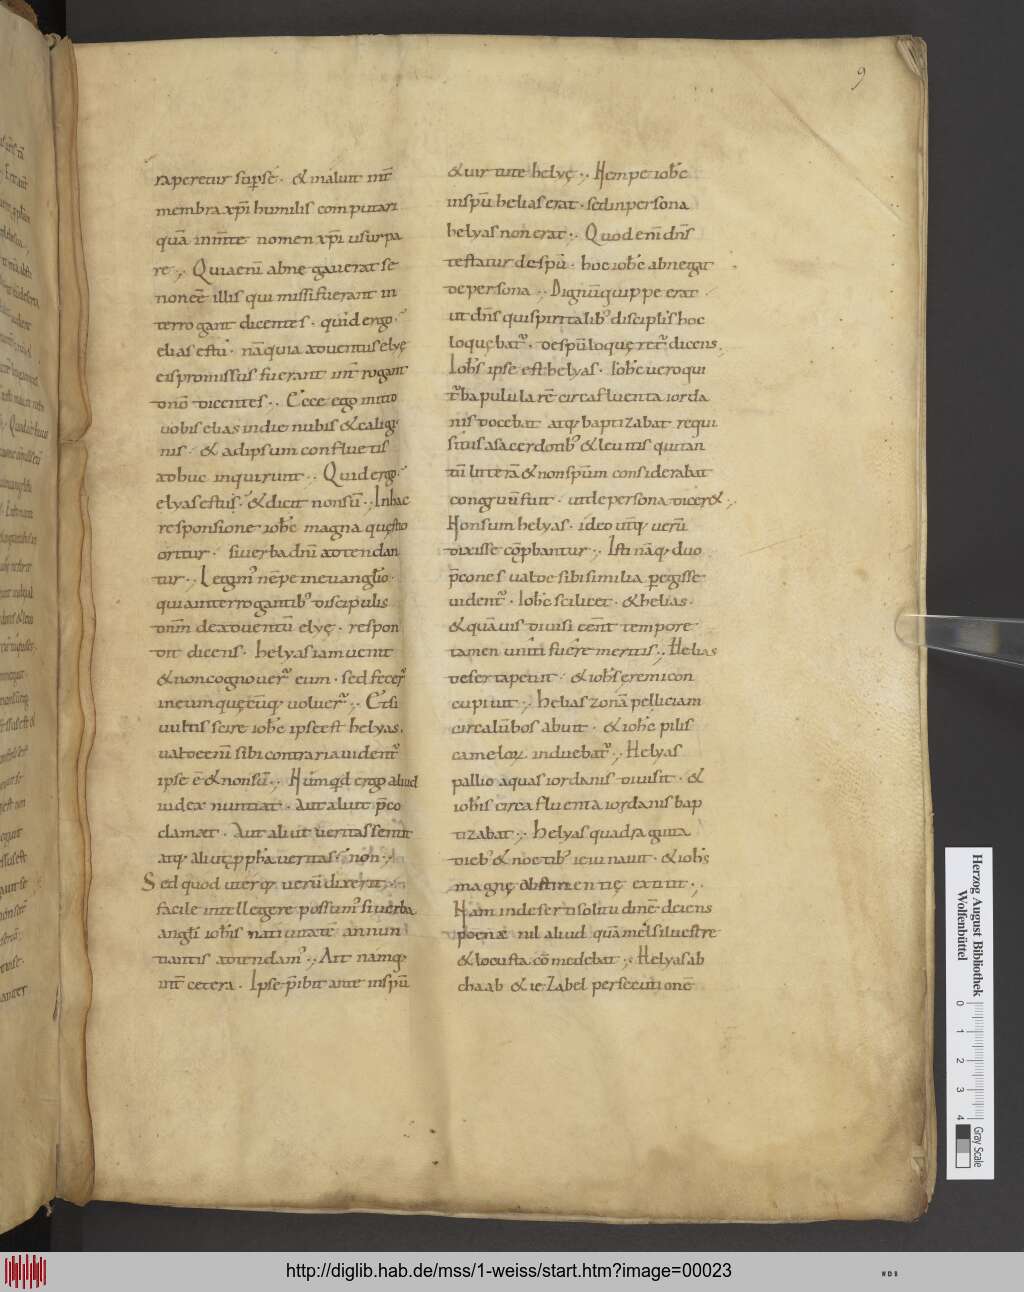 9
raperetur sup se· & maluit int̄
membra xp̄i humilis computari
quā inmt̄e nomen xp̄i usurpa
re·, Quia enī abnegauerat se
non eē illis qui missi fuerant in
terrogant dicentes· quid ergo·
elias es tu· nā quia aduentus elyę
eis promissus fuerant int̄rogant
dnō dicentes·, Ecce ego mitto
uobis elias in die nubis & calig
nis· & adipsum confluetis
adhuc inquirunt·, Quid ergo·
elyas es tu· & dicit non sū·, In hac
responsione ioh̄e magna quęstio
oritur· si uerba dn̄i adtendan
tur·, Legim' nēpe in euangl̄io·
quia interrogantib' discipulis
dnm de aduentū elyę· respon
dit dicens· helyas iam uenit
& non cognouer̄ eum· sed fecer̄
in eum quęcūq; uoluer̄·, Et si
uultis scire ioh̄e ipse est helyas·
ualde enī sibi contraria uident̄
ipse ē & non sū·, Nūmqd ergo aliud
iudex nuntiat· Aut aliut p̄co
clamat· Aut aliut ueritas sentit
atq; aliut pph̄a ueritas· non·,
Sed quod uterq; uerū dixerit·,
facile intellegere possum' si uerba
angl̄i ioh̄is natiuitatē annun
tiantis adtendam'·, Ait namq;
int̄ cetera· Ipse p̄ibit ante in spū
& uirtute helyę·, Nempe ioh̄e
in spū helias erat· sed in persona
helyas non erat·, Quod enī dn̄s
testatur de spū· hoc ioh̄e abnegat
de persona·, Dignū quippe erat·
ut dn̄s quispiritalib' disciplis hoc
loquębat̄· de spū loquęret̄ dicens·
Ioh̄s ipse est helyas· Ioh̄e uero qui
t̄ba pulularē circa fluenta iorda
nis docebat atq; baptizabat requi
situs a sacerdotib' & leuitis qui tan
tū litterā & non spūm considerabat
congruū fuit· ut de persona dicer&·,
Non sum helyas· ideo utq; uerū
dixisse cōpbantur·, Isti nāq; duo
p̄cones ualde sibi similia pegisse
uident̄· Ioh̄e scilicet· & helias·
& quāuis diuisi eēnt tempore
tamen uniti fuere meritis·, Helias
deserta petiit· & ioh̄s eremi con
cupiuit·, helias zonā pelliciam
circa lūbos abuit· & ioh̄e pilis
cameloꝝ induebat̄·, Helyas
pallio aquas iordanis diuisit· &
ioh̄is circa fluenta iordanis bap
tizabat·, helyas quadraginta
dieb' & noctib' ieiunauit· & ioh̄s
magnę abstinentię extitit·,
Nam in deserti solitudinē deiens
poenæ nil aliud quā mel siluestre
& locusta cōmedebat·, Helyas ab
chaab & iezabel persecutionē
Herzog August Bibliothek
Wolfenbüttel
0 1 2 3 4
Gray Scale
http://diglib.hab.de/mss/1-weiss/start.htm?image=00023